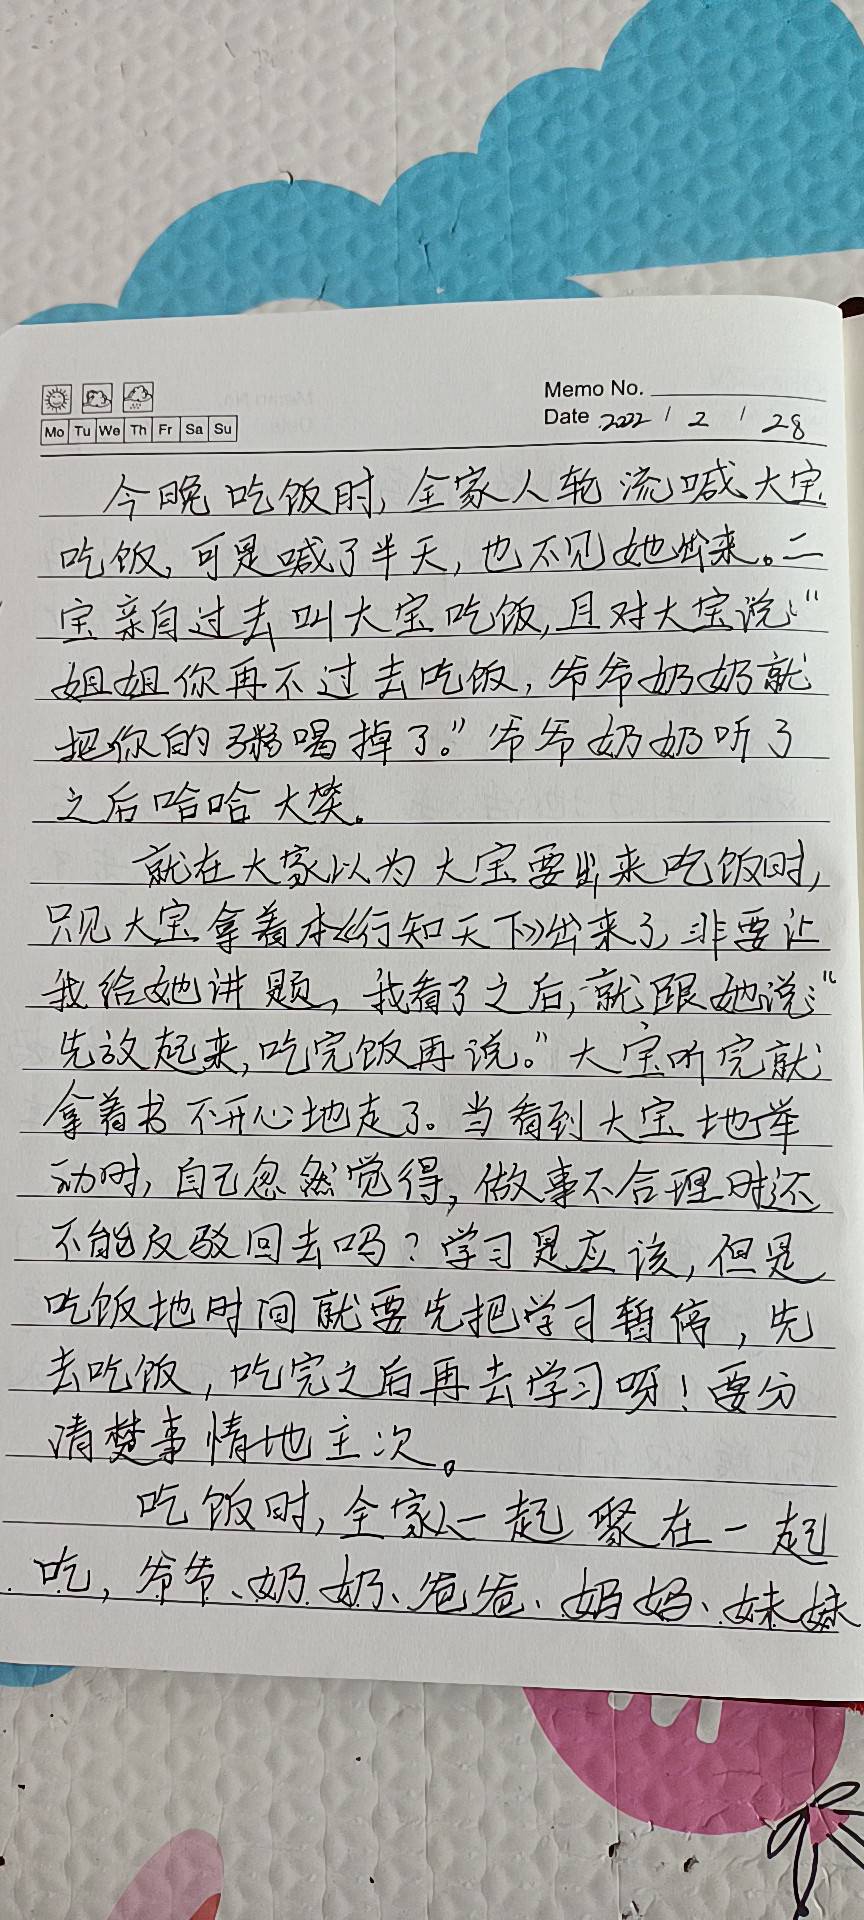 Memo No.
Mo Tu We Th Fr Sa Su
Date 2022 / 2 / 28
今晚吃饭时,全家人轮流喊大宝
吃饭,可是喊了半天,也不见她出来。二
宝亲自过去叫大宝吃饭,且对大宝说:“
姐姐你再不过去吃饭,爷爷奶奶就
把你的粥喝掉了。”爷爷奶奶听了
之后哈哈大笑。
就在大家以为大宝要出来吃饭时,
只见大宝拿着本《行知天下》出来了,非要让
我给她讲题,我看了之后,就跟她说:“
先放起来,吃完饭再说。”大宝听完就
拿着书不开心地走了。当看到大宝地举
动时,自己忽然觉得,做事不合理时还
不能反驳回去吗?学习是应该,但是
吃饭地时间就要先把学习暂停,先
去吃饭,吃完之后再去学习呀!要分
清楚事情地主次。
吃饭时,全家人一起聚在一起
吃,爷爷、奶奶、爸爸、妈妈、妹妹